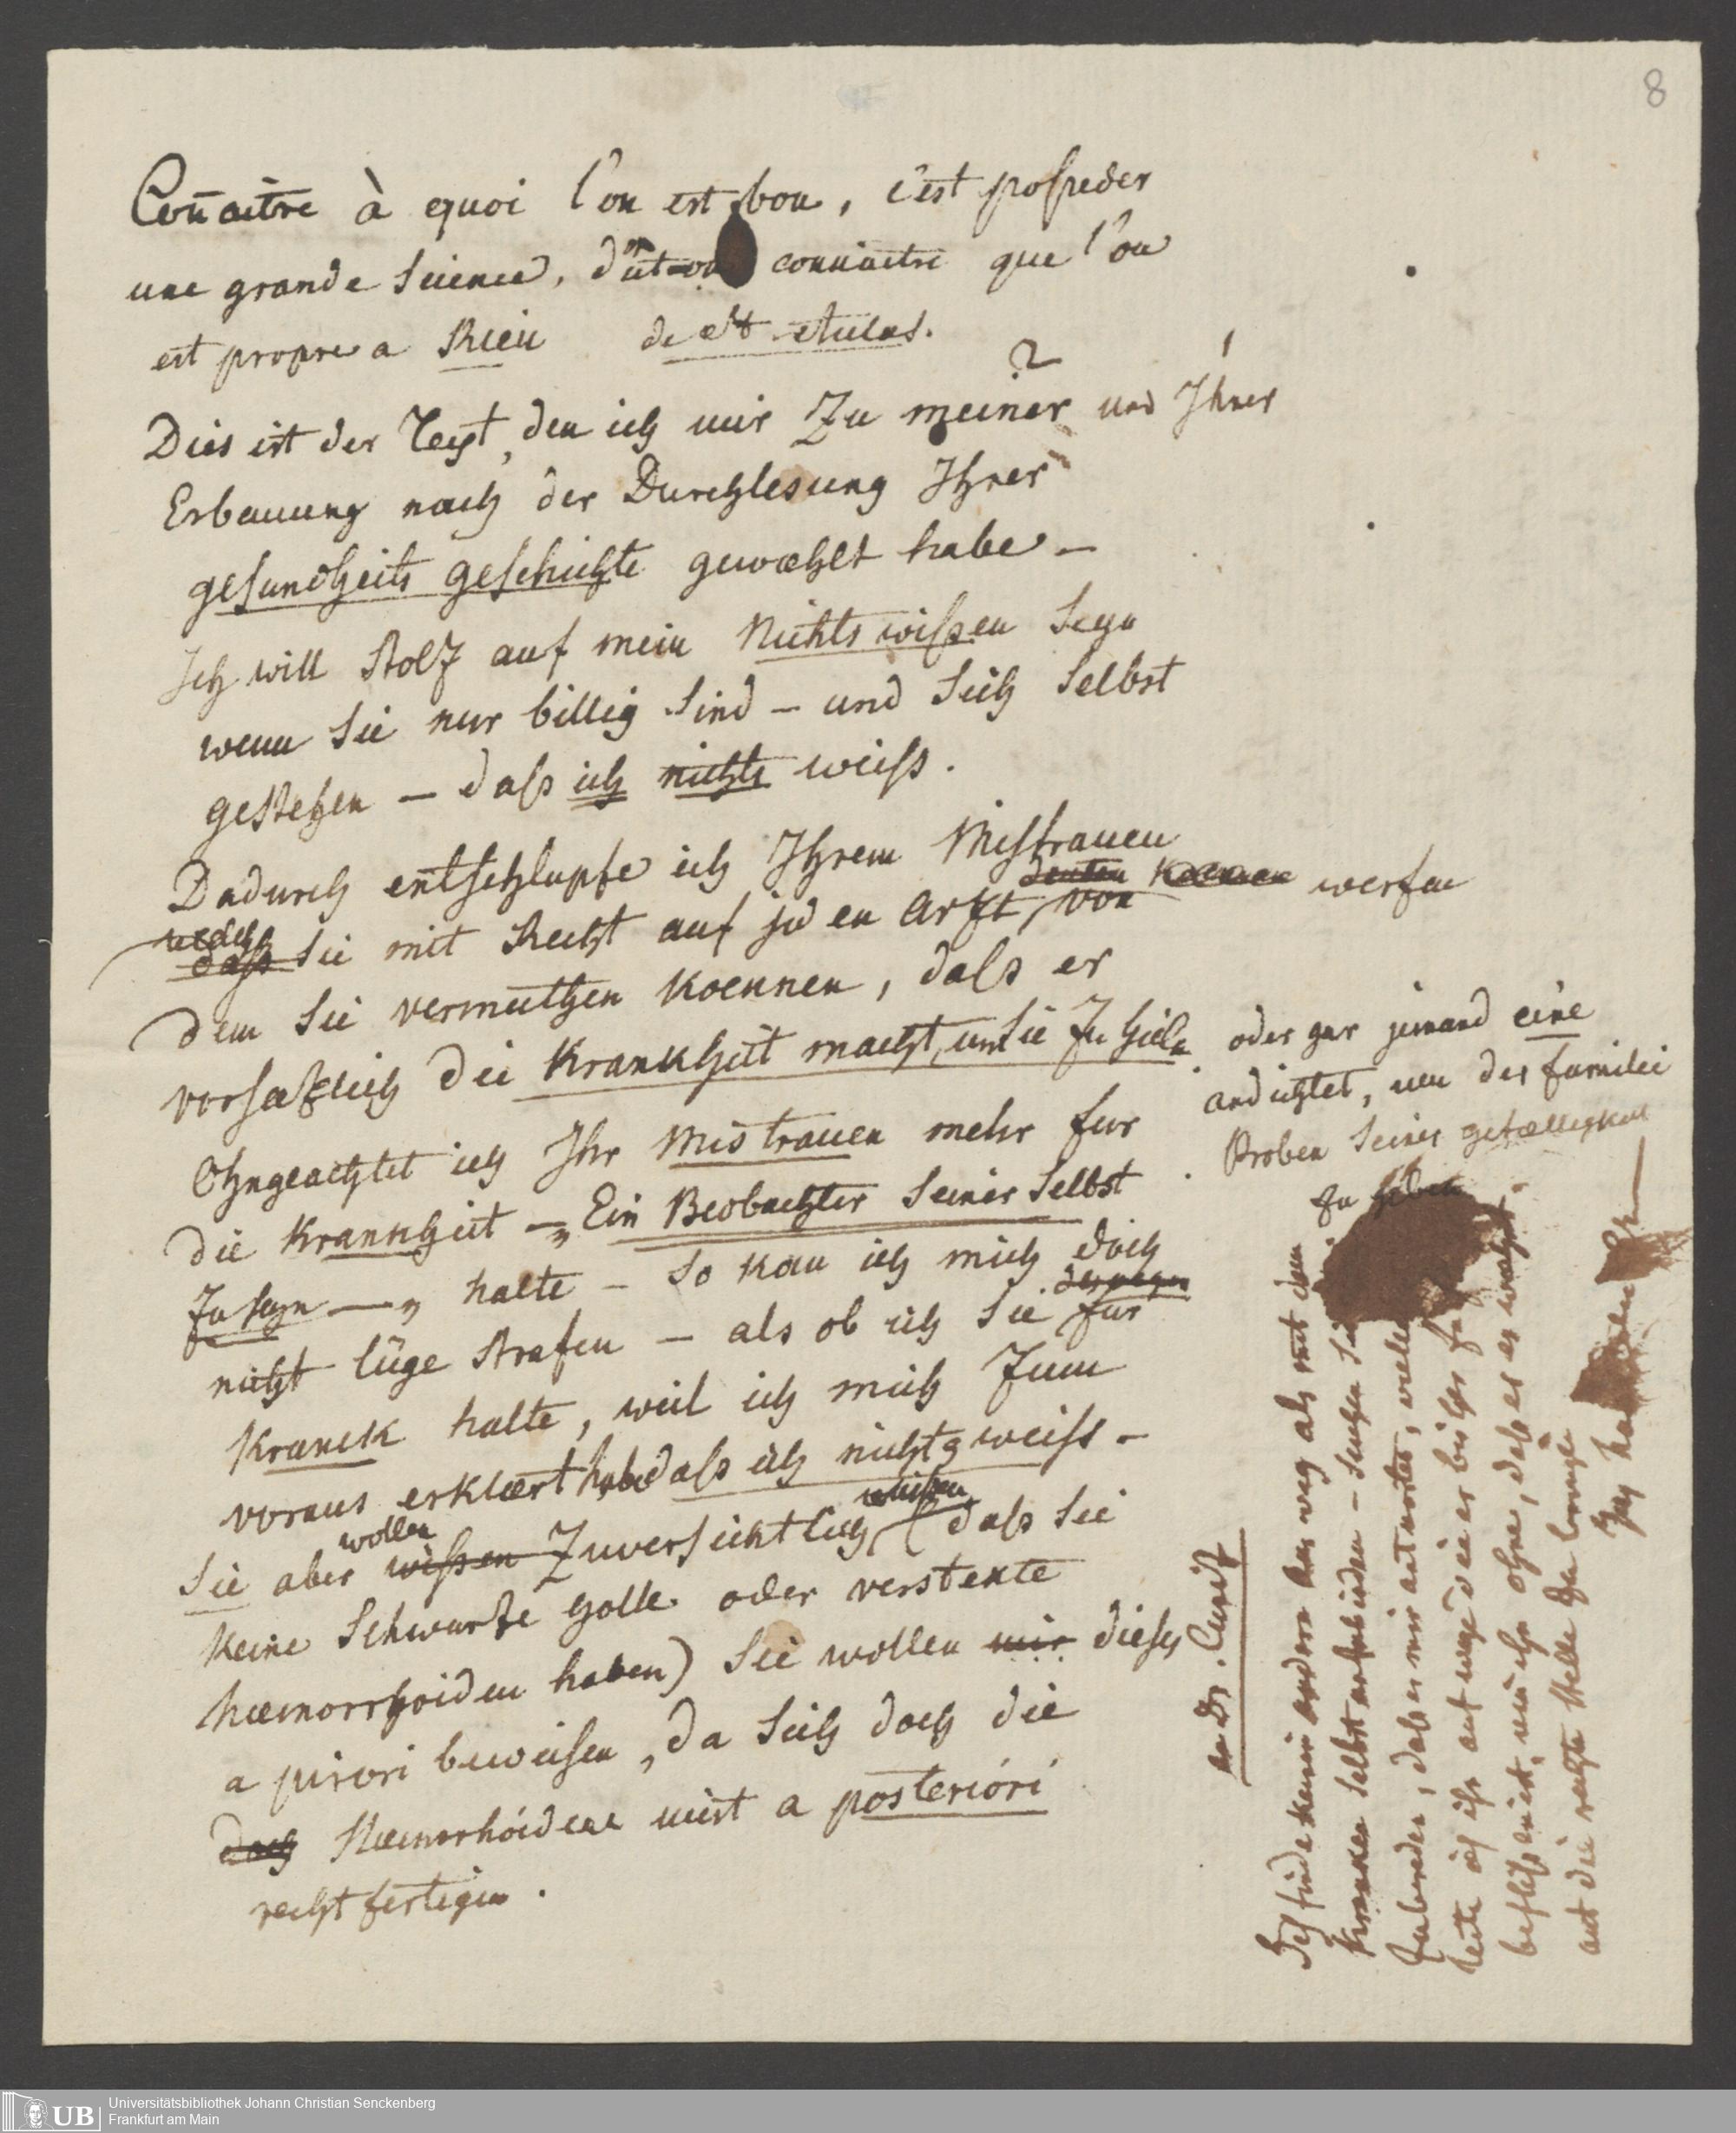 8
Connaitre à quoi l'on est bon, c'est posseder
une grande Science, dut-on connaitre que l'on
est propre a Rien
Dies ist der Text, den ich mir Zu meiner und Ihrer
Erbauung nach der Durchlesung Ihrer
gesundheits geschichte gewæhlt habe –
Ich will stolz auf mein Nichts wissen Seyn
wenn Sie nur billig Sind – und Sich Selbst
gestehen – dass ich nichts weiss.
Dadurch entschlupfe ich Ihrem Mistrauen
daß Sie mit Recht auf jeden Arzt, von werfen
dem Sie vermuthen koennen, dass er
vorsæzlich die Krankheit macht, um Sie zu heilen
oder gar jemand eine
andichtet, um der familie
Proben Seiner gefælligkeit
zu geben
Ohngeachtet ich Ihr Mistrauen mehr fur
die Krankheit –„ Ein Beobachter Seiner Selbst
zu seyn –„ halte – So kan ich mich doch
nicht lüge strafen – als ob ich Sie deswegen fur
Kranck halte, weil ich mich zum
voraus erklært habe daß ich nichts weiss –
Sie aber wollen wissen Zuversichtlich wissen (dass Sie
keine Schwarze galle oder verstekte
hæmorrhoiden haben) Sie wollen mir dieses
a priori beweisen, da Sich doch die
doch Hæmorrhóiden meist a posterióri
rechtfertigen.
Ich finde keinen andern weg als mit dem
Krancken Selbst
zubereden, dass er mir antwortet,
leite ich ihn auf wege die er bisher
ohne, dass er es
auf die rechte Stelle zu bringen
Universitätsbibliothek Johann Christian Senckenberg
Frankfurt am Main
UB